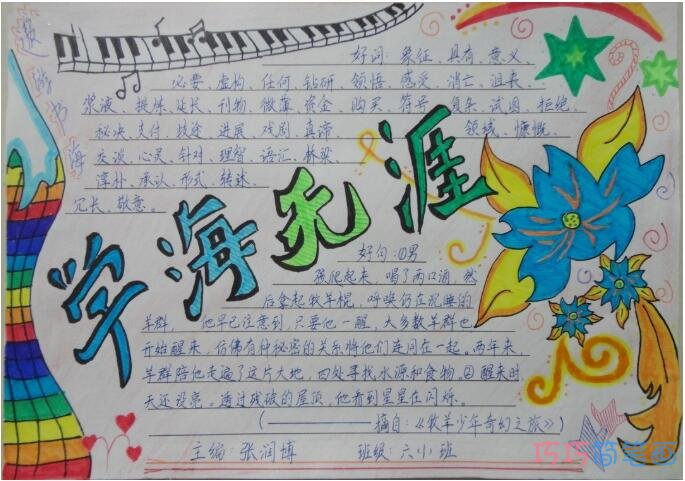 遨游书海
好词：象征、具有、意义、
必要、虚构、任何、钻研、领悟、感受、消亡、沮丧、
浆液、提炼、延长、刊物、微薄、资金、购买、符号、复杂、试图、拒绝、
秘诀、支付、歧途、进展、戏剧、真谛、领域、慷慨、
交谈、心灵、针对、理智、语汇、桥梁、
淳朴、承认、形式、转述、
冗长、敬意。
学海无涯
好句：①男
孩爬起来，喝了两口酒，然
后拿起牧羊棍，呼唤仍在沉睡的
羊群，他早已注意到，只要他一醒，大多数羊群也
开始醒来，仿佛有种秘密的关系将他们连同在一起。两年来，
羊群陪他走遍了这片大地，四处寻找水源和食物。②醒来时
天还没亮。透过残破的屋顶，他看到星星在闪烁。
(————摘自：《牧羊少年奇幻之旅》)
主编：张润博 班级：六小班
巧巧简笔画